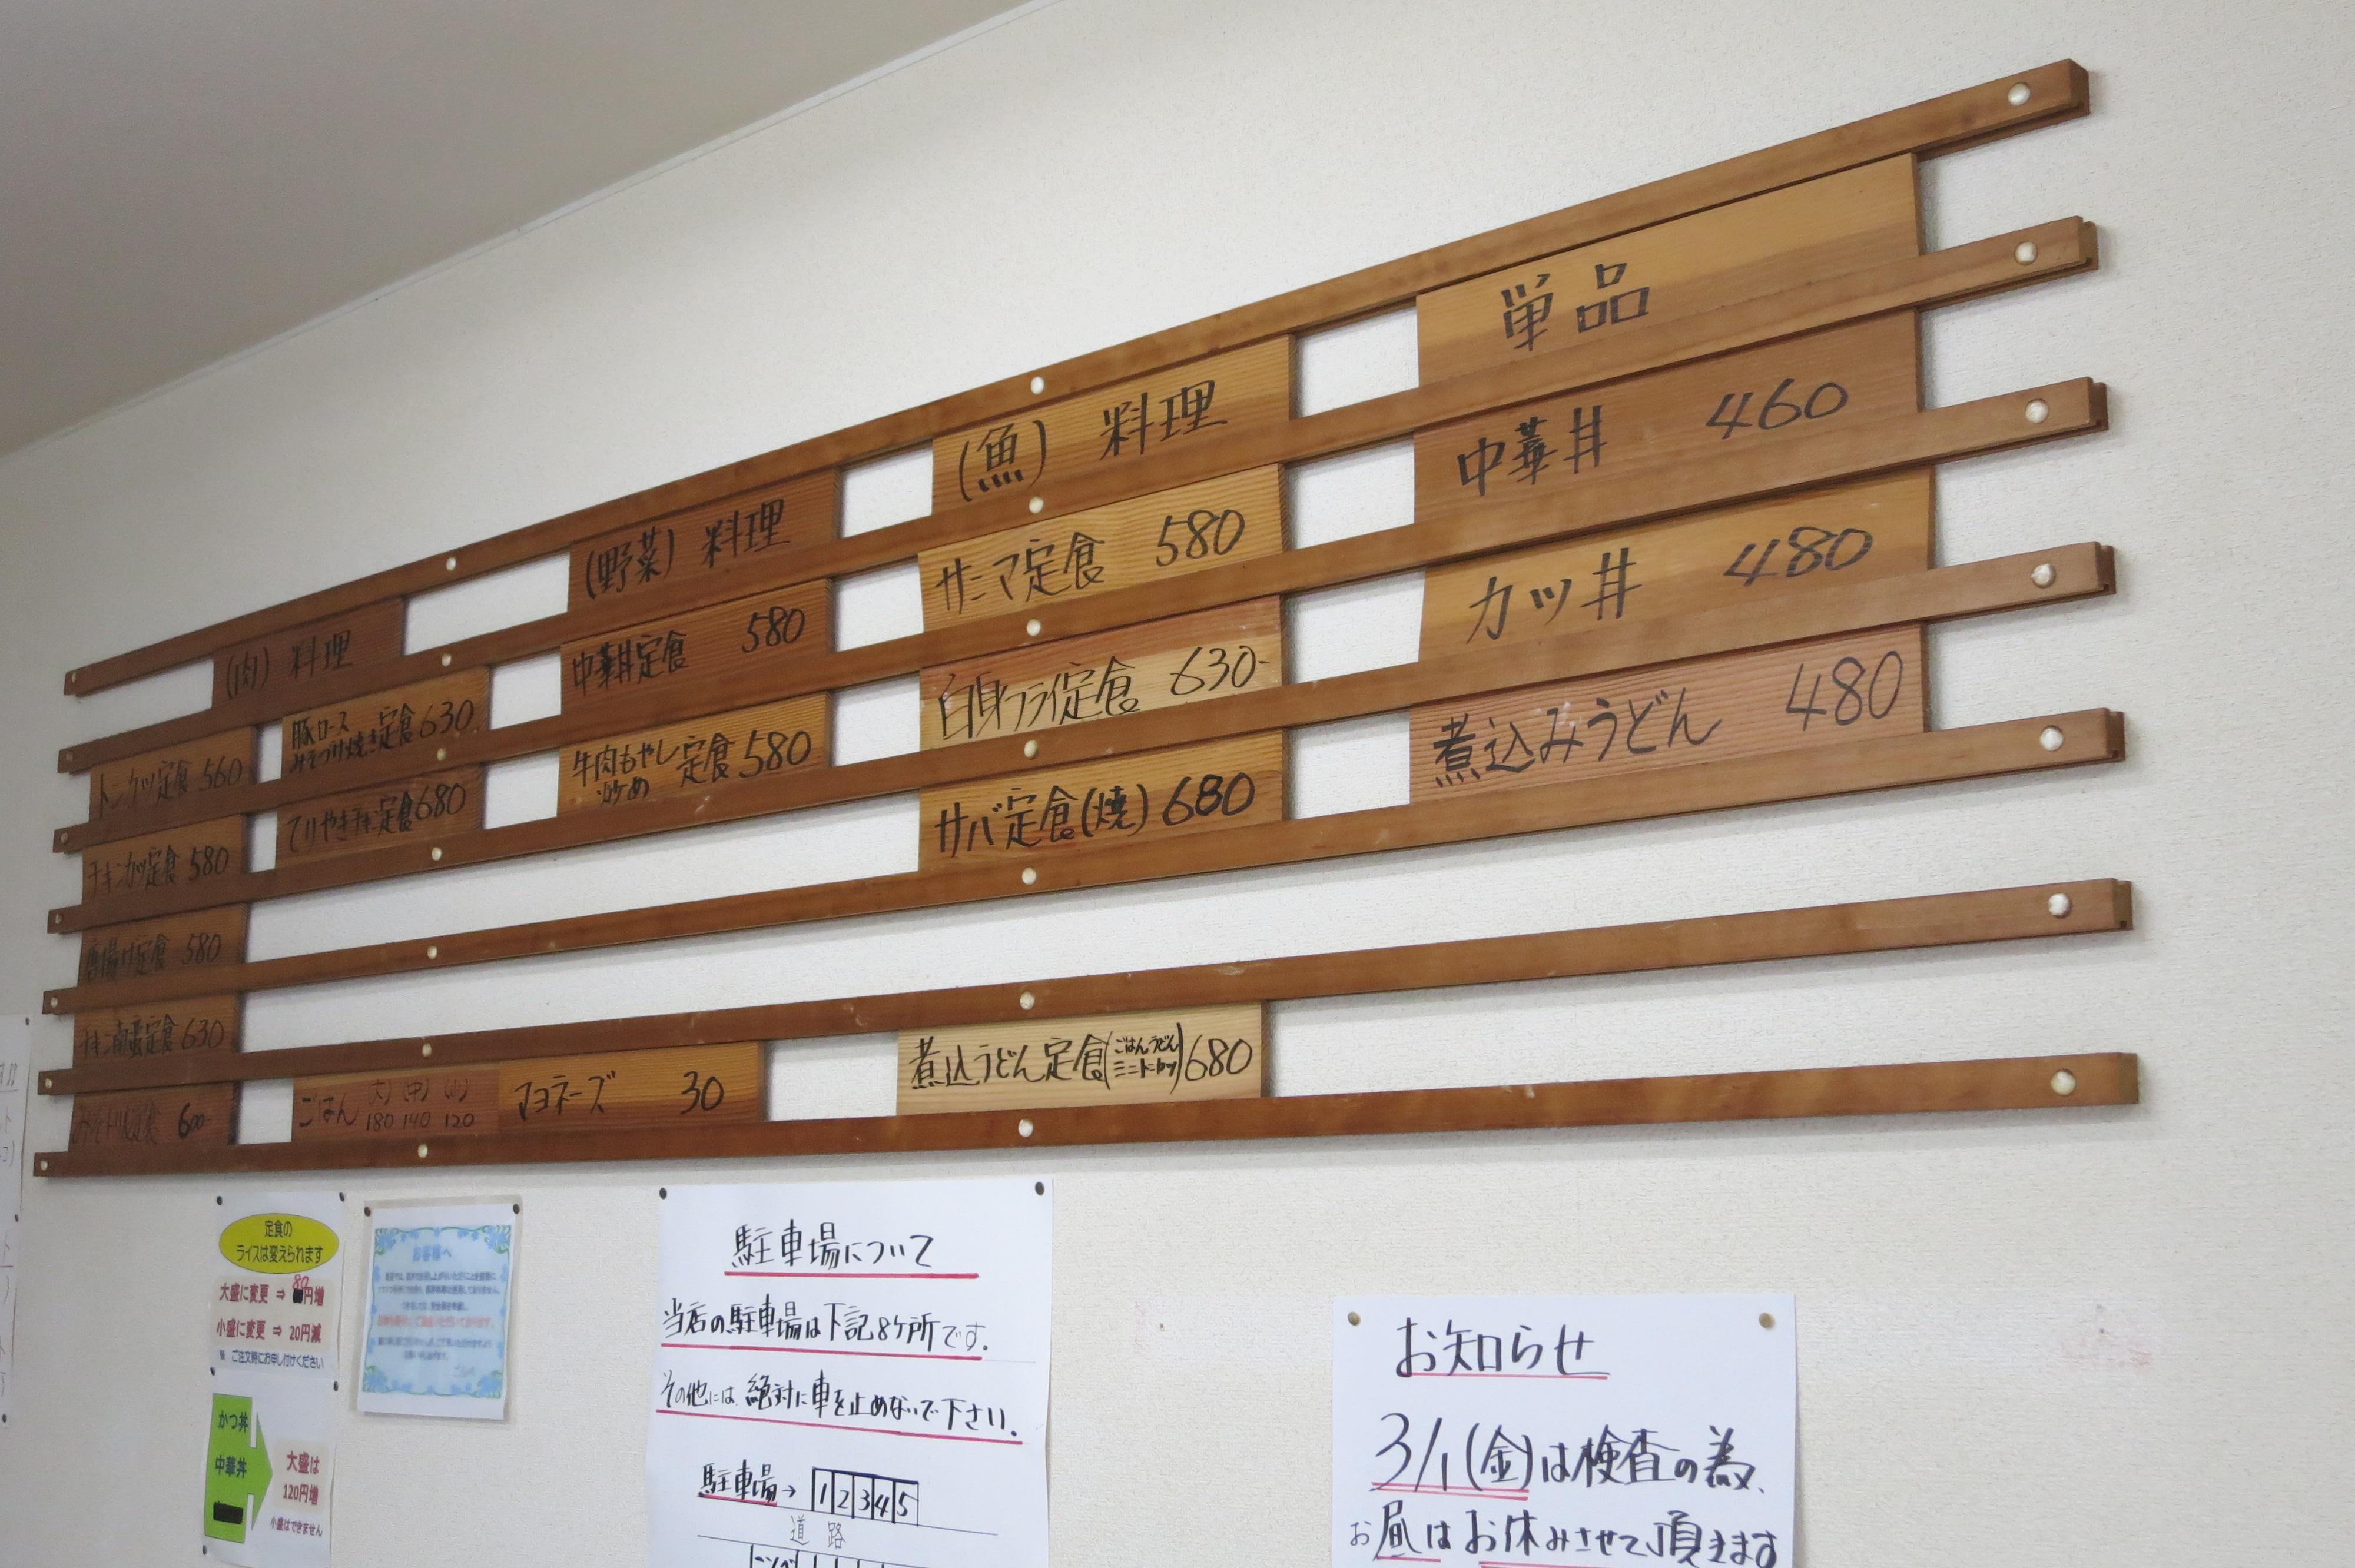 (肉) 料理
トンカツ定食 560
チキンカツ定食 580
唐揚げ定食 580
チキン南蛮定食 630
定食 600-
豚ロース
みそづけ焼き定食 630
てりやきチキン定食 680
ごはん (大) (中) (小)
180 140 120
マヨネーズ 30
(野菜) 料理
中華丼定食 580
牛肉もやし
炒め 定食 580
(魚) 料理
サンマ定食 580
白身フライ定食 630-
サバ定食(焼) 680
煮込うどん定食(ごはん うどん
ミニトンカツ) 680
単品
中華丼 460
カツ丼 480
煮込みうどん 480
定食の
ライスは変えられます
大盛に変更 ⇒ 80円増
小盛に変更 ⇒ 20円減
※ ご注文時にお申し付けください
かつ丼
中華丼
大盛は
120円増
小盛はできません
お客様へ
駐車場について
当店の駐車場は下記8ヶ所です.
その他には 絶対に車を止めないで下さい.
駐車場→ 1 2 3 4 5
道路
お知らせ
3/1(金)は検査の為、
お昼はお休みさせて頂きます